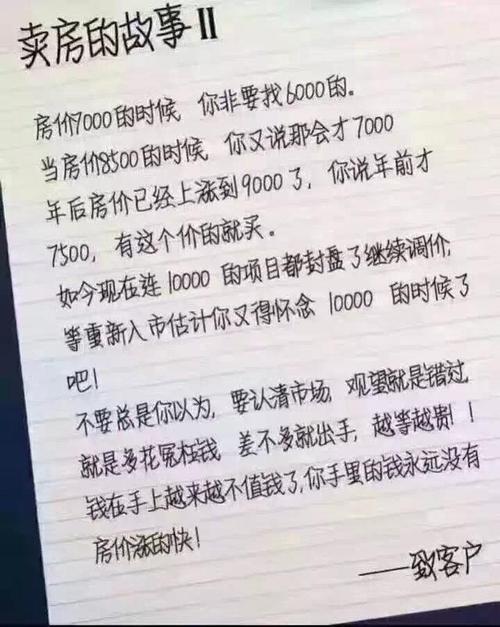 卖房的故事Ⅱ
房价7000的时候,你非要找6000的。
当房价8500的时候,你又说那会才7000
年后房价已经上涨到9000了,你说年前才
7500,有这个价的就买。
如今现在连10000的项目都封盘了继续调价,
等重新入市估计你又得怀念10000的时候了
吧!
不要总是你以为,要认清市场,观望就是错过,
就是多花冤枉钱,差不多就出手,越等越贵!!
钱在手上越来越不值钱了,你手里的钱永远没有
房价涨的快!
——致客户